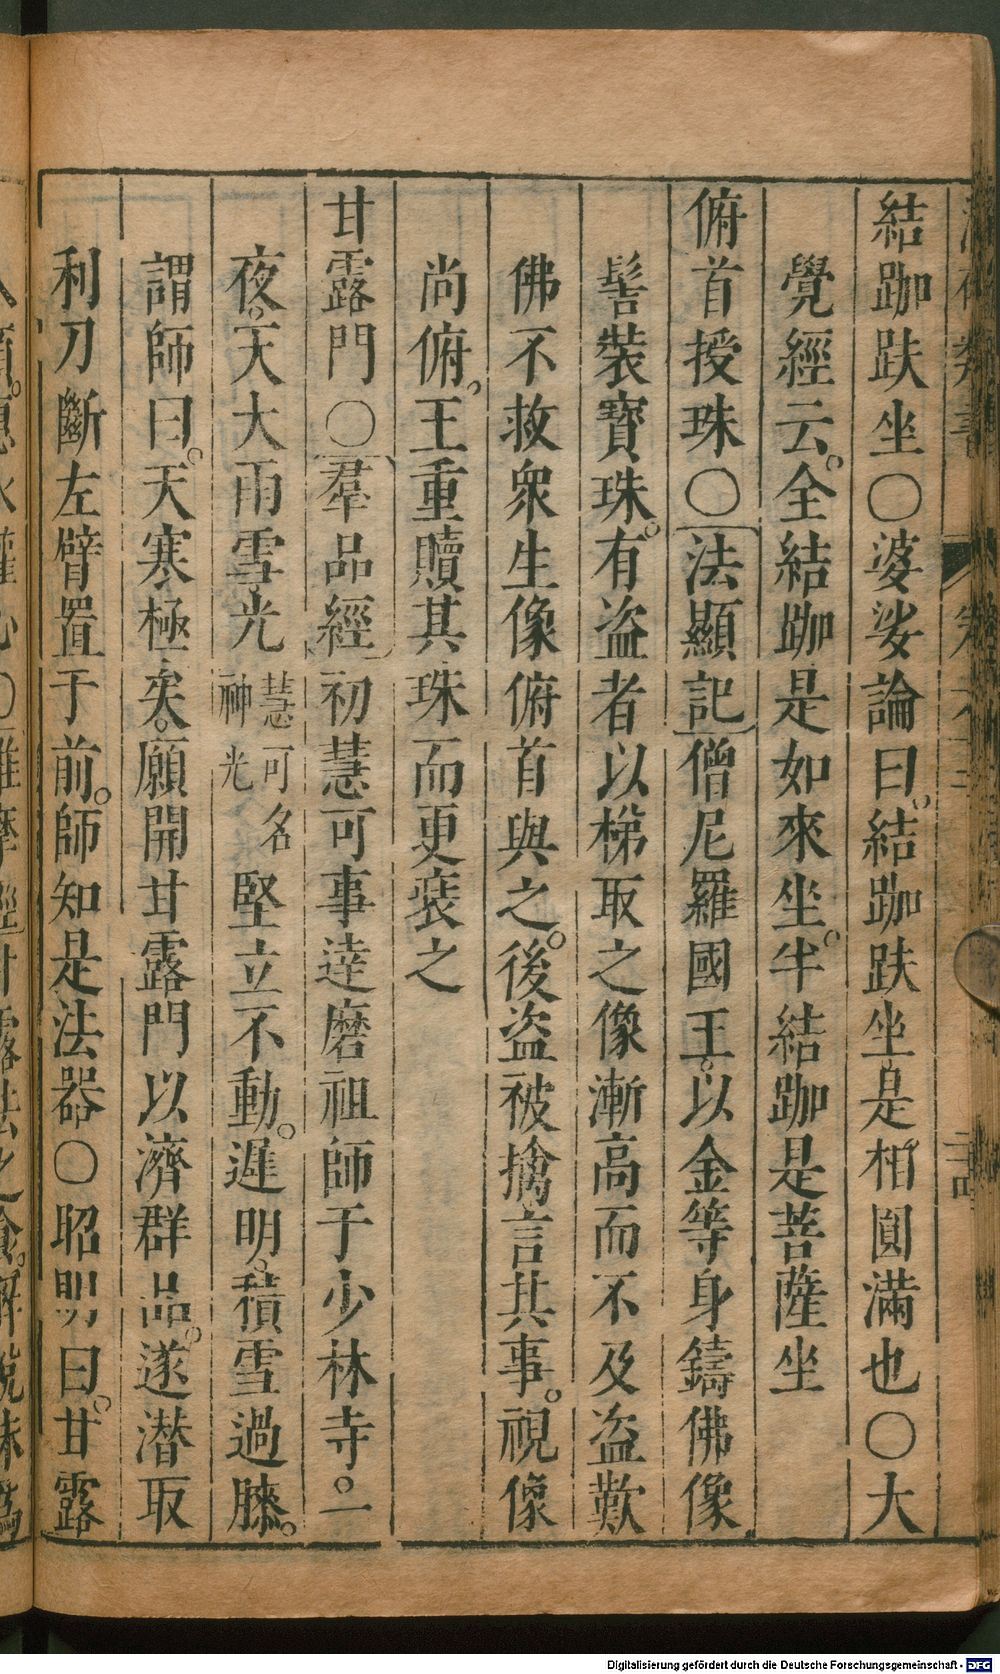 結跏趺坐〇婆娑論曰。結跏趺坐。是相圓滿也〇大
覺經云。全結跏是如來坐。半結跏是菩薩坐
俯首授珠〇法顯記僧尼羅國王。以金等身鑄佛像
髻裝寶珠。有盜者以梯取之像漸高而不及盜歎
佛不救衆生像俯首與之。後盜被擒言其事。視像
尚俯。王重贖其珠而更裝之
甘露門〇羣品經初慧可事達磨祖師于少林寺。一
夜。天大雨雪光慧可名神光堅立不動。遲明。積雪過膝。
謂師曰。天寒極矣。願開甘露門以濟群品。遂潛取
利刀斷左臂置于前。師知是法器〇昭明曰。甘露
Digitalisierung gefördert durch die Deutsche Forschungsgemeinschaft - DFG